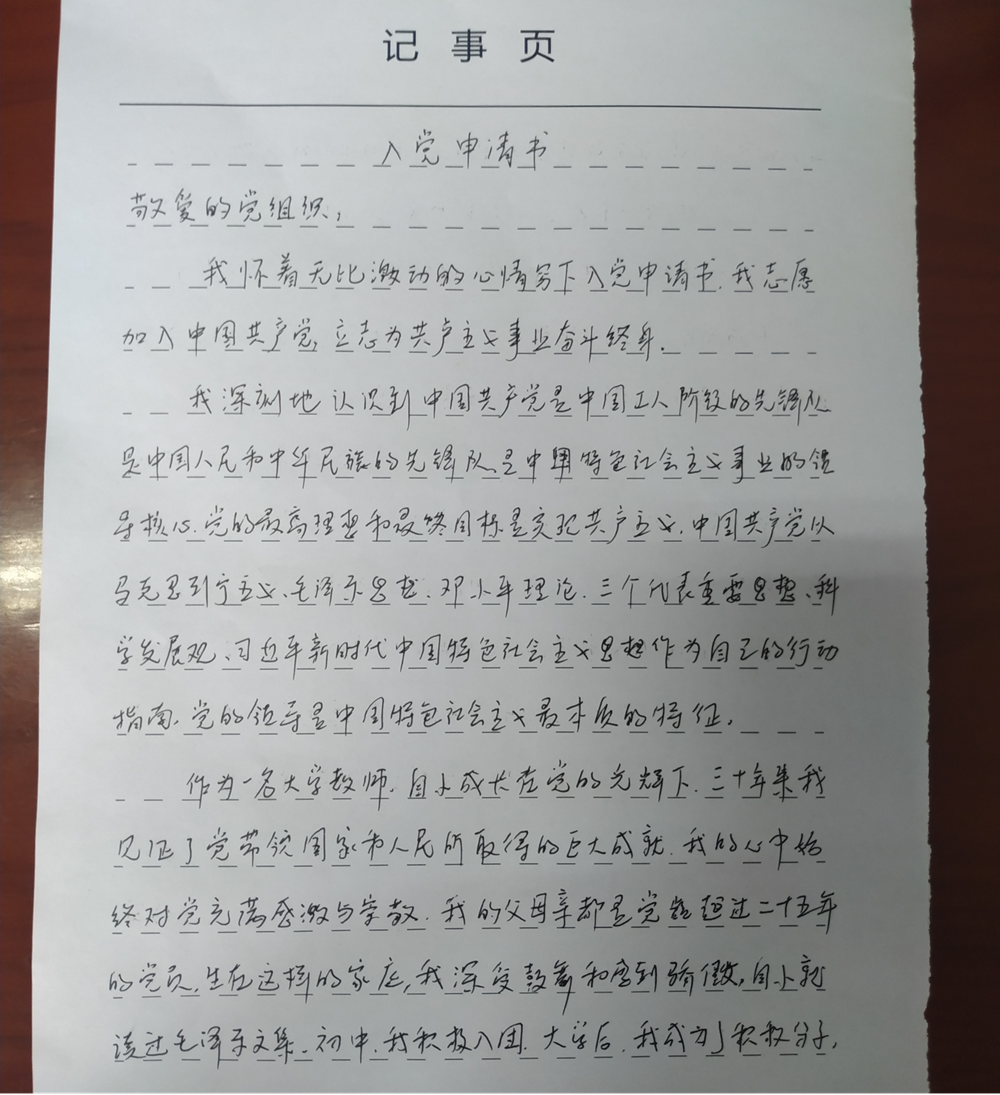 记事页
入党申请书
敬爱的党组织:
我怀着无比激动的心情写下入党申请书.我志愿
加入中国共产党,立志为共产主义事业奋斗终身.
我深刻地认识到中国共产党是中国工人阶级的先锋队
是中国人民和中华民族的先锋队,是中国特色社会主义事业的领
导核心.党的最高理想和最终目标是实现共产主义.中国共产党以
马克思列宁主义、毛泽东思想、邓小平理论、三个代表重要思想、科
学发展观、习近平新时代中国特色社会主义思想作为自己的行动
指南.党的领导是中国特色社会主义最本质的特征.
作为一名大学教师.自小成长在党的光辉下.三十年来我
见证了党带领国家和人民所取得的巨大成就.我的心中始
终对党充满感激与崇敬.我的父母亲都是党龄超过二十五年
的党员,生在这样的家庭,我深受鼓舞和感到骄傲,自小就
读过毛泽东文集.初中,我积极入团.大学后,我成为了积极分子,